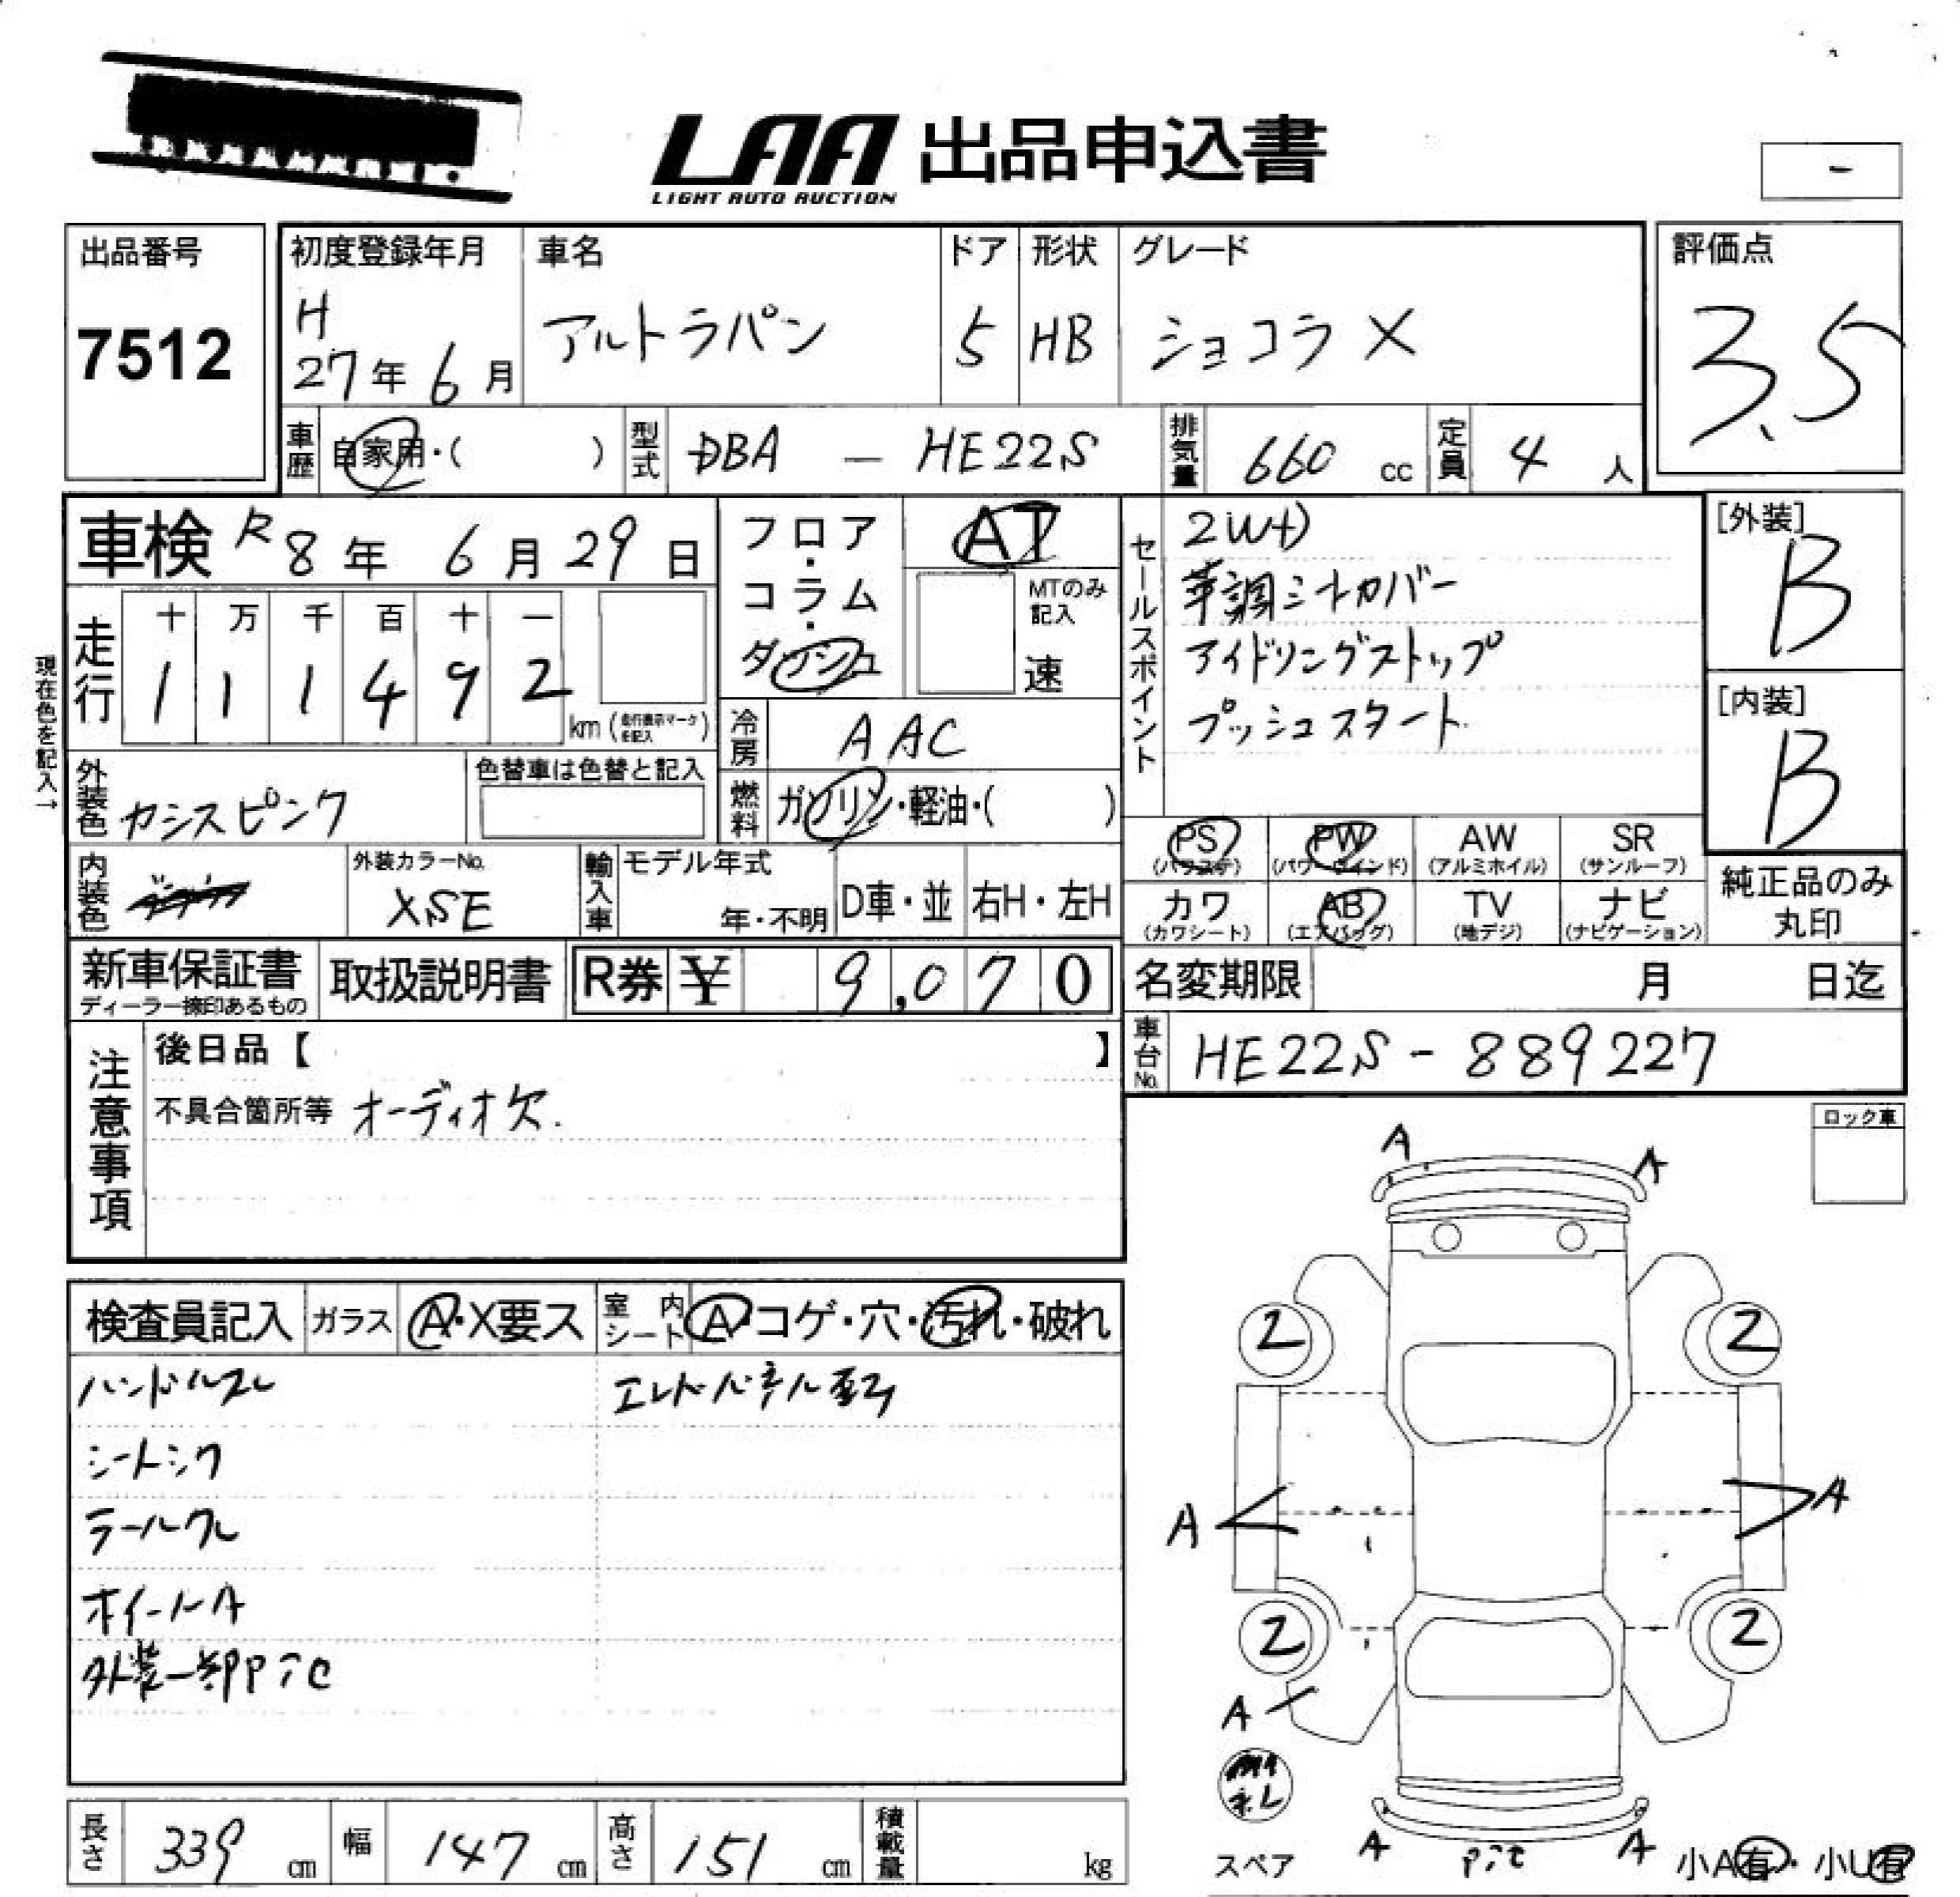 LAA 出品申込書
LIGHT AUTO AUCTION
-
出品番号
7512
初度登録年月
H
27年 6月
車名
アルトラパン
ドア
5
形状
HB
グレード
ショコラ X
評価点
3.5
車歴 自家用・( )
型式 DBA - HE22S
排気量 660 cc
定員 4 人
車検 R8年 6月 29日
フロア・コラム・ダッシュ
AT
MTのみ記入
速
走行
十 万 千 百 十 一
1 1 1 4 9 2
km (走行表示マークを記入)
現在色を記入→
冷房 AAC
燃料 ガソリン・軽油・( )
外装色 カシスピンク
色替車は色替と記入
内装色
外装カラーNo.
XSE
輸入車
モデル年式
年・不明
D車・並
右H・左H
セールスポイント
2WD
革調シートカバー
アイドリングストップ
プッシュスタート
[外装]
B
[内装]
B
PS (パワステ)
PW (パワーウインド)
AW (アルミホイル)
SR (サンルーフ)
カワ (カワシート)
AB (エアバッグ)
TV (地デジ)
ナビ (ナビゲーション)
純正品のみ
丸印
新車保証書
ディーラー捺印あるもの
取扱説明書
R券 ¥ 9,070
名変期限 月 日迄
車台No. HE22S-889227
注意事項
後日品【 】
不具合箇所等 オーディオ欠.
ロック車
検査員記入
ガラス A・X要ス
室内シート A・コゲ・穴・汚れ・破れ
ハンドルスレ
シートシワ
テールクレ
ホイールA
外装一部pic
A A
2 2
A A
2 2
A
スペア
A pic A
小A有・小U有
長さ 339 cm
幅 147 cm
高さ 151 cm
積載量 kg